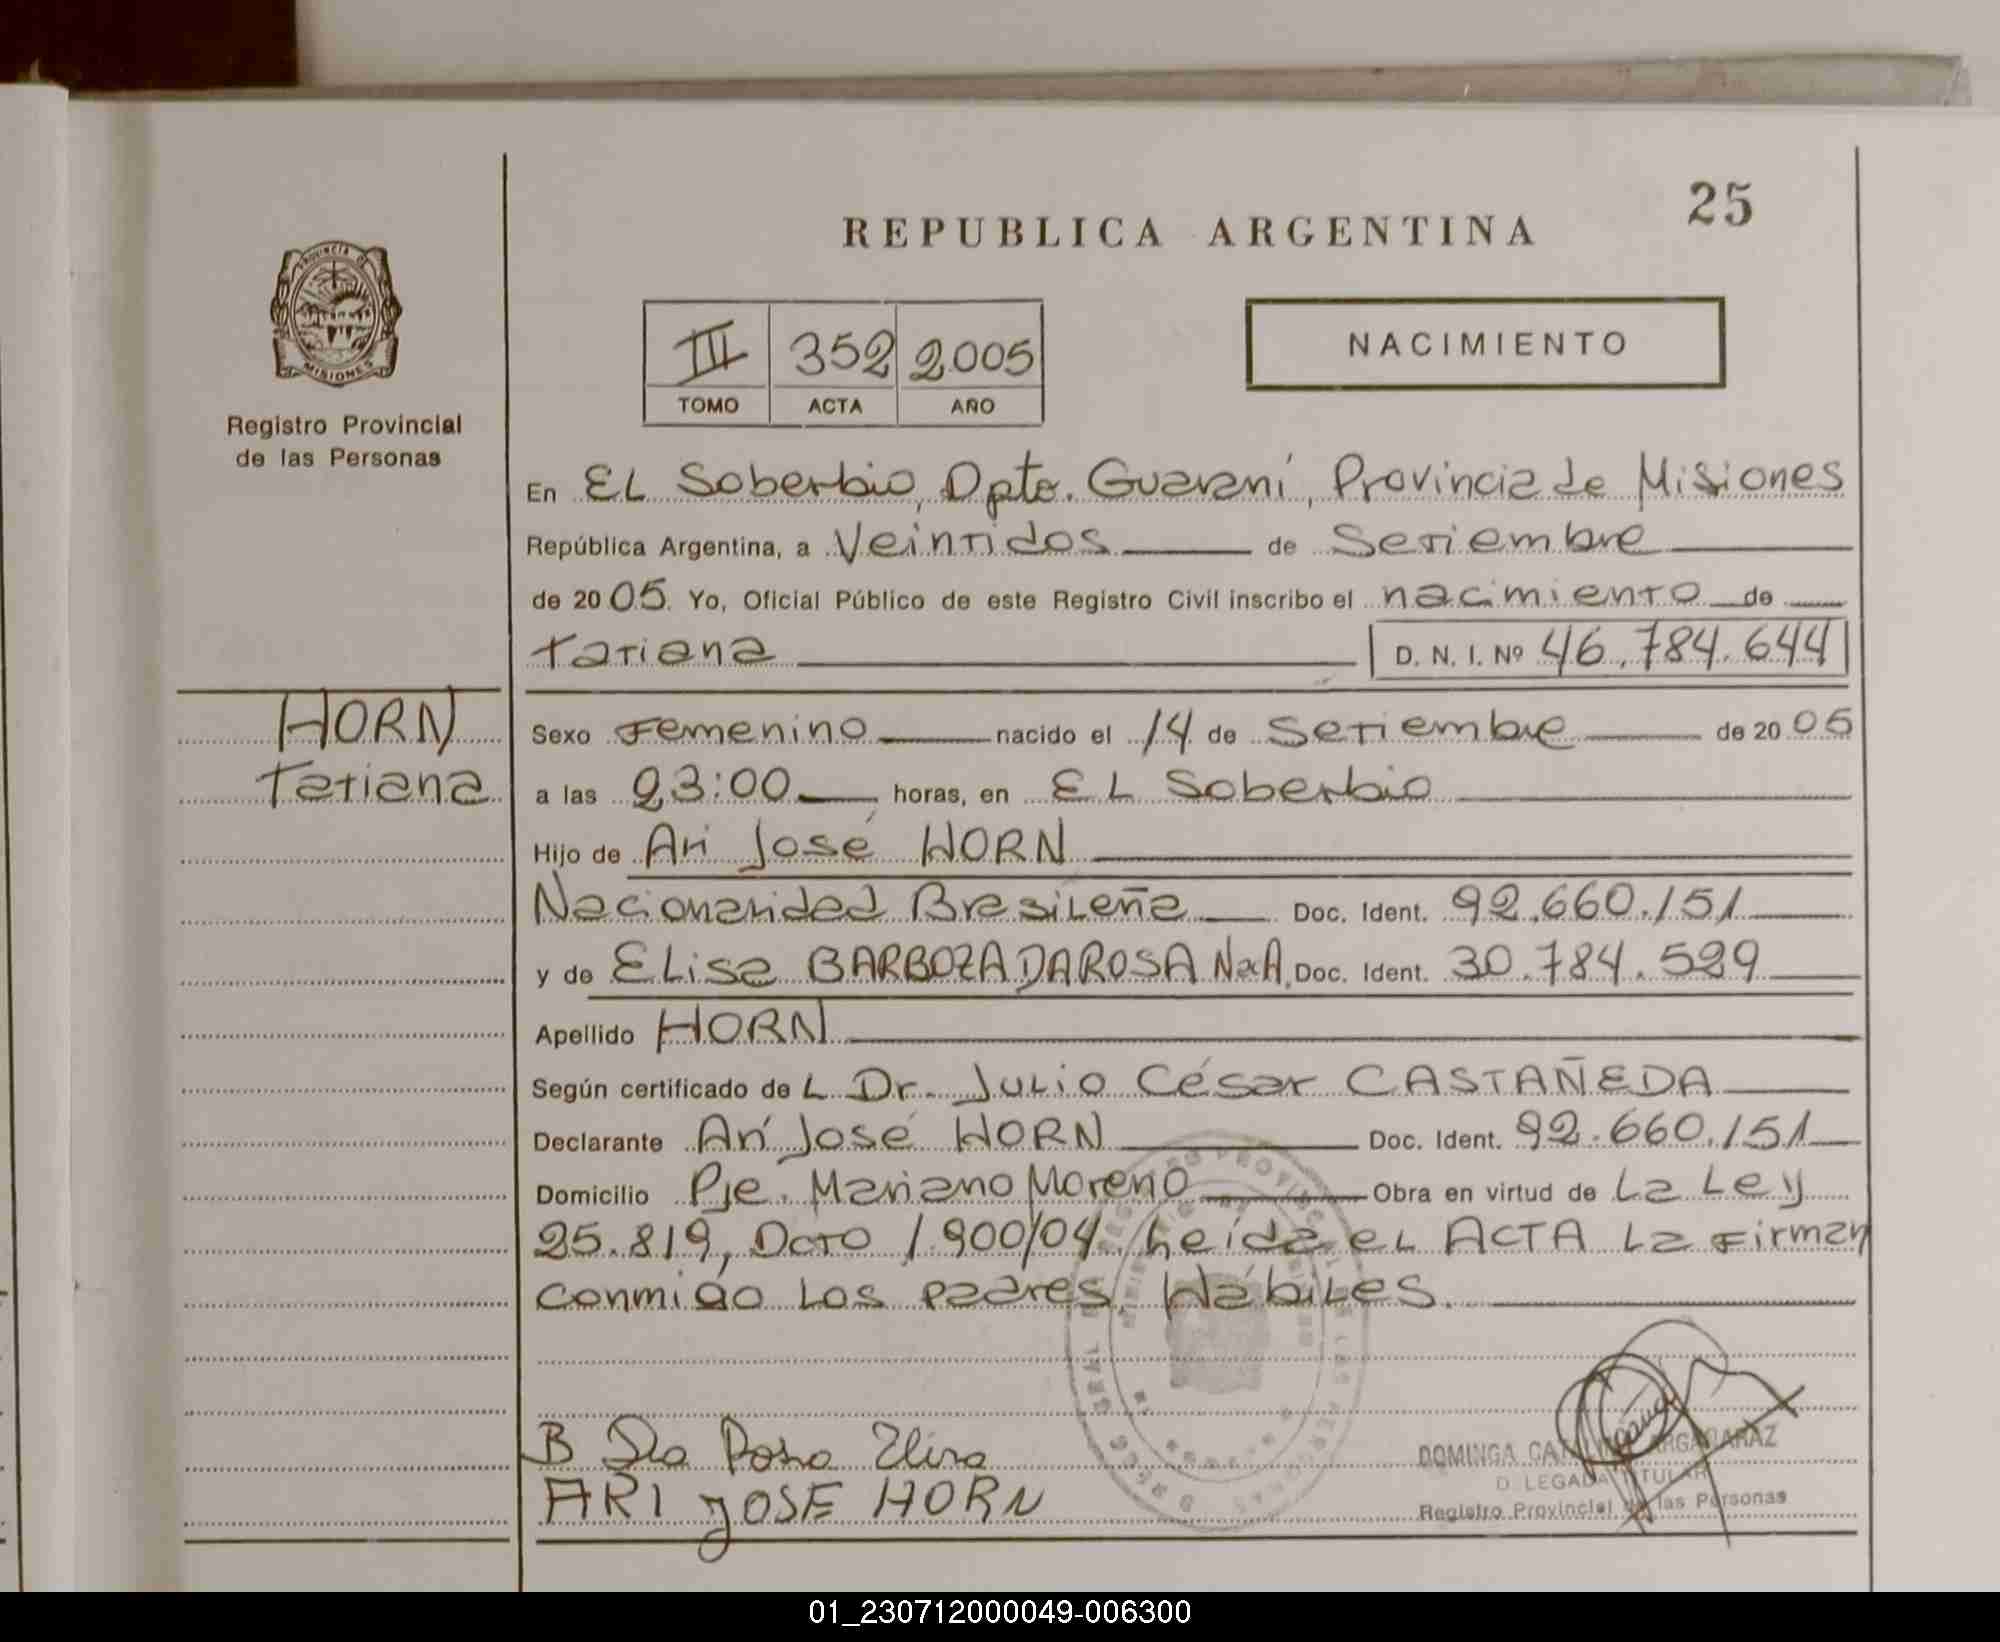 25
REPUBLICA ARGENTINA
PROVINCIA DE
MISIONES
Registro Provincial
de las Personas
III 352 2005
TOMO ACTA AÑO
NACIMIENTO
En EL Soberbio, Dpto. Guaraní, Provincia de Misiones
República Argentina, a Veintidos de Setiembre
de 2005. Yo, Oficial Público de este Registro Civil inscribo el nacimiento de
Tatiana D. N. I. Nº 46.784.644
HORN
Tatiana
Sexo Femenino nacido el 14 de Setiembre de 2005
a las 23:00 horas, en EL Soberbio
Hijo de Ari José HORN
Nacionalidad Brasileña Doc. Ident. 92.660.151
y de Elisa BARBOZA DA ROSA NaA. Doc. Ident. 30.784.529
Apellido HORN
Según certificado de L Dr. Julio César CASTAÑEDA
Declarante Ari José HORN Doc. Ident. 92.660.151
Domicilio Pje. Mariano Moreno Obra en virtud de La Ley
25.819, Dcto 1.900/04. Leída el ACTA la firman
conmigo los padres, Hábiles.
B Da Rosa Elisa
ARI JOSE HORN
DOMINGA CATALINA ARGAÑARAZ
D. LEGADA TITULAR
Registro Provincial de las Personas
01_230712000049-006300